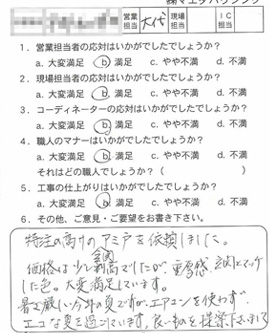 ㈱マエダハウジング
営業担当 大代 現場担当 IC担当
1. 営業担当者の応対はいかがでしたでしょうか?
a. 大変満足 b. 満足 c. やや不満 d. 不満
2. 現場担当者の応対はいかがでしたでしょうか?
a. 大変満足 b. 満足 c. やや不満 d. 不満
3. コーディネーターの応対はいかがでしたでしょうか?
a. 大変満足 b. 満足 c. やや不満 d. 不満
4. 職人のマナーはいかがでしたでしょうか?
a. 大変満足 b. 満足 c. やや不満 d. 不満
それはどの職人でしょうか?( )
5. 工事の仕上がりはいかがでしたでしょうか?
a. 大変満足 b. 満足 c. やや不満 d. 不満
6. その他、ご意見・ご要望をお書き下さい。
特注の高けのアミ戸を依頼しました。
価格は少し割高でしたが、重厚感、玄関とマッチ
した色。大変満足しています。
暑さ厳しい今年の夏ですが、エアコンを使わず
エコな夏を過ごしています。良い物を提案下さいまして